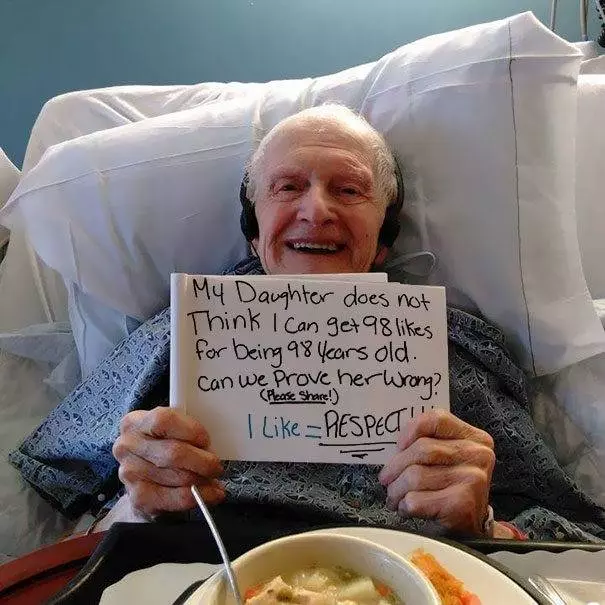 My Daughter does not
Think I can get 98 likes
for being 98 years old.
can we Prove her Wrong?
(Please Share!)
1 Like = RESPECT!!!